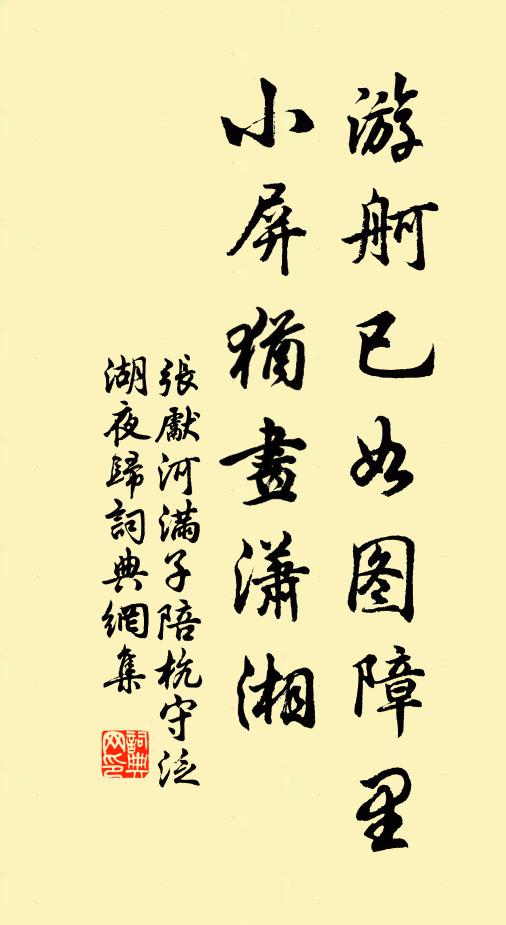 游舸已如图障里
小屏猶畫潇湘
張獻河滿子陪杭守泛
湖夜歸詞典網集
詞典
网印